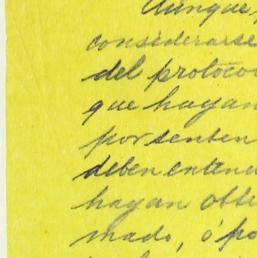 Aunque,
considerarse
del protoco
que hayan
por senten
deben enten
hayan obte
mado, ó po